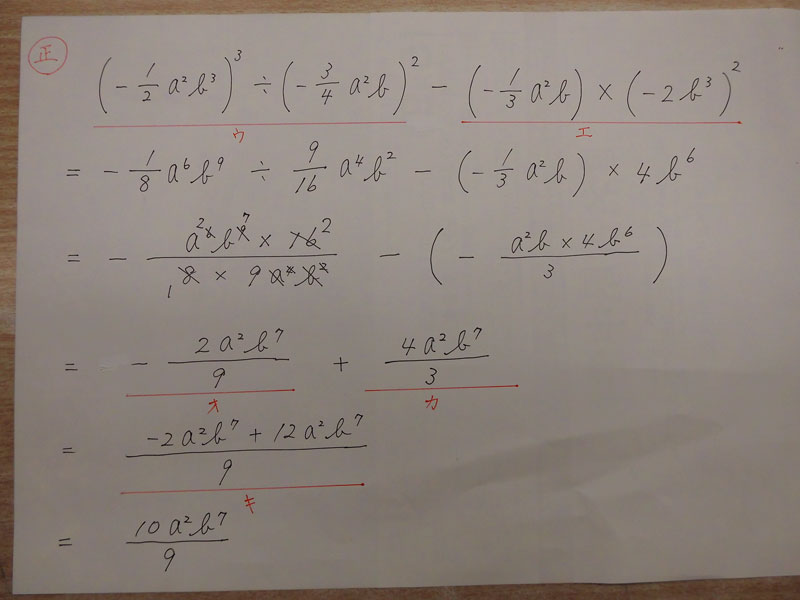 正
(-1/2 a²b³)³ ÷ (-3/4 a²b)² - (-1/3 a²b) × (-2b³)²
ウ エ
= -1/8 a⁶b⁹ ÷ 9/16 a⁴b² - (-1/3 a²b) × 4b⁶
= - a⁶²b⁹⁷ × 16 2 / 8 1 × 9a⁴b² - (- a²b × 4b⁶ / 3)
= - 2a²b⁷/9 + 4a²b⁷/3
オ カ
= -2a²b⁷ + 12a²b⁷ / 9
キ
= 10a²b⁷/9